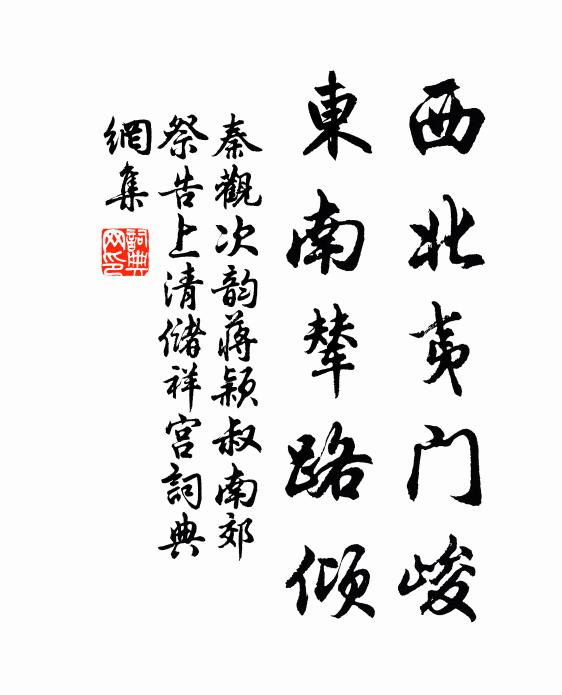 西北夷门峻
東南辇路倾
秦觀次韵蒋颖叔南郊
祭告上清储祥宫詞典
網集
詞典
网印